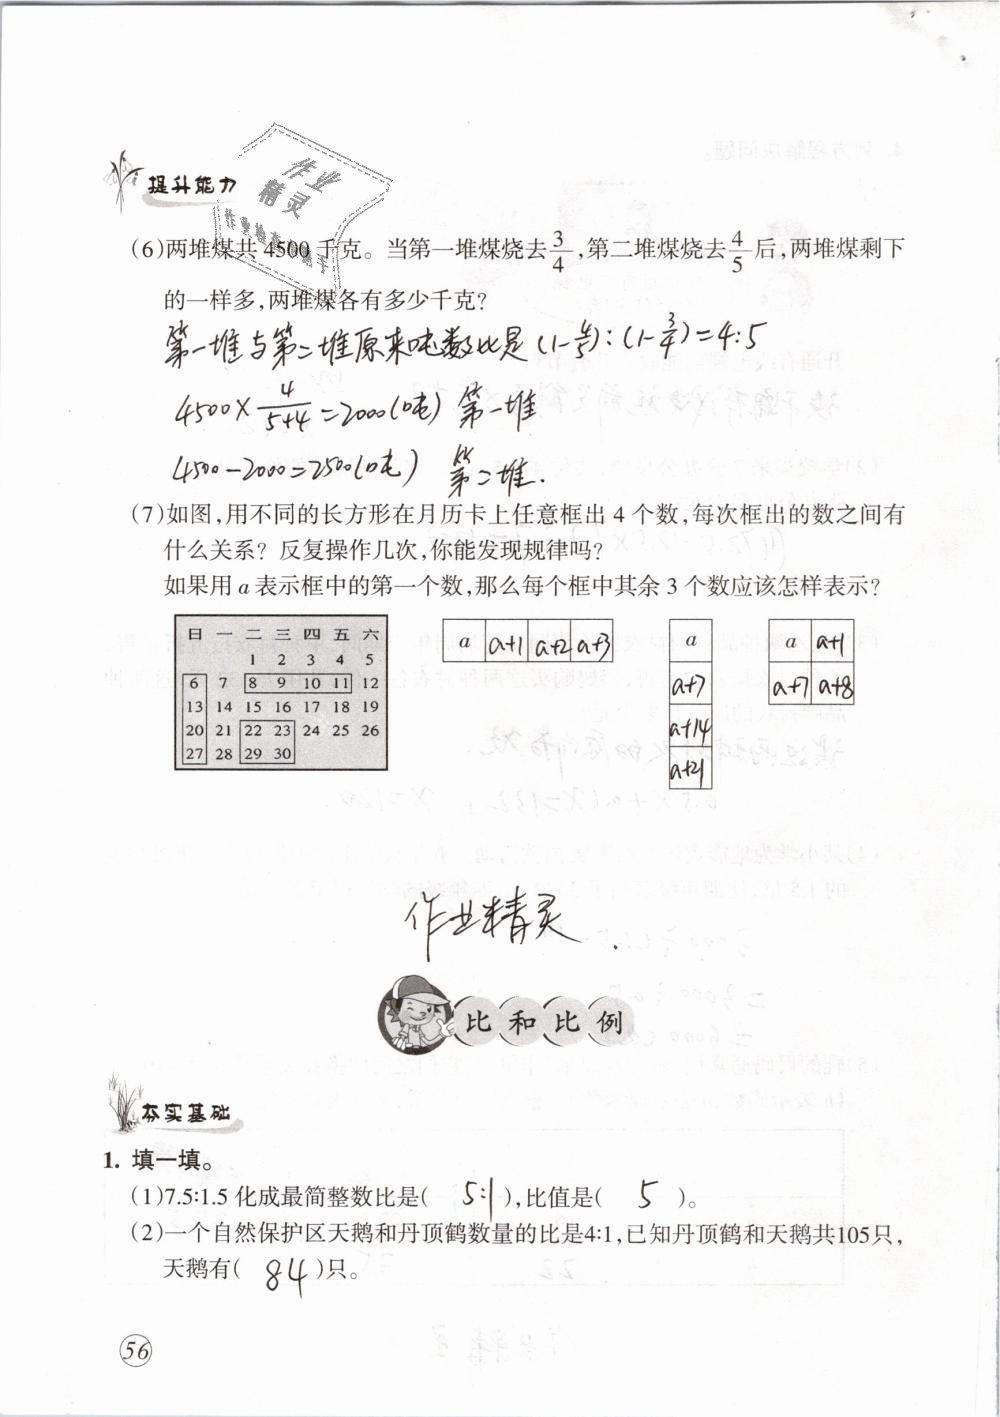 提升能力
作业
精灵
(6)两堆煤共 4500 千克。当第一堆煤烧去3/4,第二堆煤烧去4/5后,两堆煤剩下
的一样多,两堆煤各有多少千克?
第一堆与第二堆原来吨数比是(1-4/5):(1-3/4)=4:5
4500×4/(5+4)=2000(吨) 第一堆
4500-2000=2500(吨) 第二堆.
(7)如图,用不同的长方形在月历卡上任意框出 4 个数,每次框出的数之间有
什么关系? 反复操作几次,你能发现规律吗?
如果用 a 表示框中的第一个数,那么每个框中其余 3 个数应该怎样表示?
日 一 二 三 四 五 六
1 2 3 4 5
6 7 8 9 10 11 12
13 14 15 16 17 18 19
20 21 22 23 24 25 26
27 28 29 30
a a+1 a+2 a+3
a
a+7
a+14
a+21
a a+1
a+7 a+8
作业精灵
比和比例
夯实基础
1. 填一填。
(1)7.5∶1.5 化成最简整数比是( 5:1 ),比值是( 5 )。
(2)一个自然保护区天鹅和丹顶鹤数量的比是4∶1,已知丹顶鹤和天鹅共105只,
天鹅有( 84 )只。
56